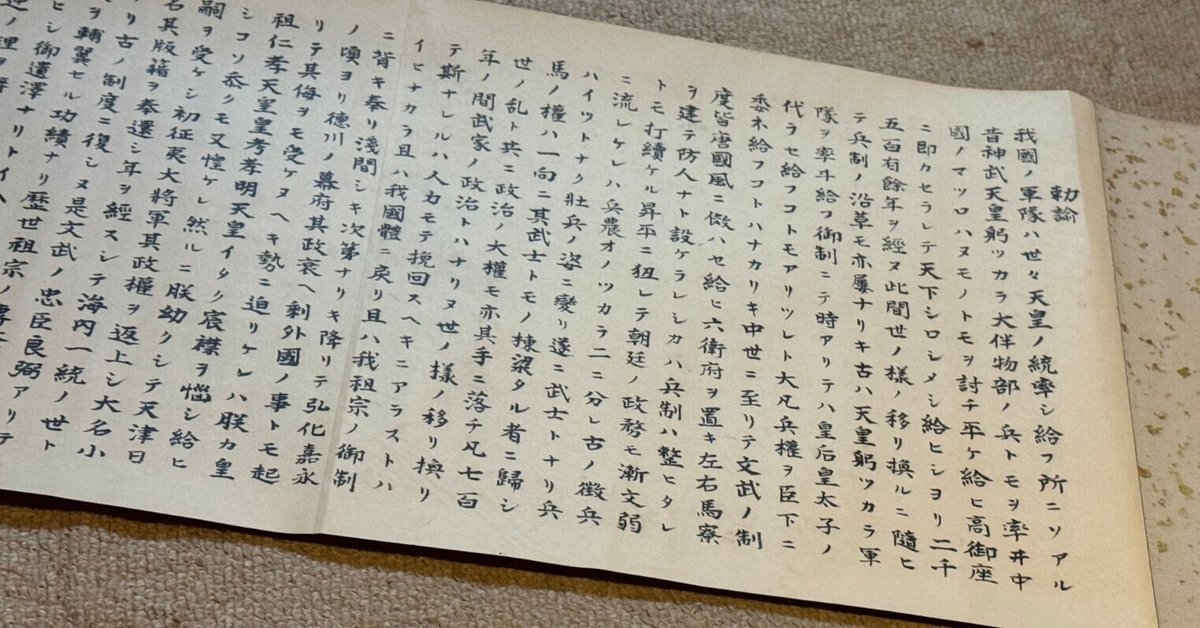 勅諭
我國ノ軍隊ハ世々天皇ノ統率シ給フ所ニソアル
昔神武天皇躬ツカラ大伴物部ノ兵トモヲ率井中
國ノマツロハヌモノトモヲ討チ平ケ給ヒ高御座
ニ即カセラレテ天下シロシメシ給ヒシヨリ二千
五百有餘年ヲ經ヌ此間世ノ樣ノ移リ換ルニ隨ヒ
テ兵制ノ沿革モ亦屢ナリキ古ハ天皇躬ツカラ軍
隊ヲ率井給フ御制ニテ時アリテハ皇后皇太子ノ
代ラセ給フコトモアリツレト大凡兵權ヲ臣下ニ
委ネ給フコトハナカリキ中世ニ至リテ文武ノ制
度皆唐國風ニ傚ハセ給ヒ六衛府ヲ置キ左右馬寮
ヲ建テ防人ナト設ケラレシカハ兵制ハ整ヒタレ
トモ打續ケル昇平ニ狃レテ朝廷ノ政務モ漸文弱
ニ流レケレハ兵農オノツカラ二ニ分レ古ノ徴兵
ハイツトナク壯兵ノ姿ニ變リ遂ニ武士トナリ兵
馬ノ權ハ一向ニ其武士トモノ棟梁タル者ニ歸シ
世ノ乱ト共ニ政治ノ大權モ亦其手ニ落テ凡七百
年ノ間武家ノ政治トハナリヌ世ノ樣ノ移リ換リ
テ斯ナレルハ人力モテ挽回スヘキニアラストハ
イヒナカラ且ハ我國體ニ戻リ且ハ我祖宗ノ御制
ニ背キ奉リ淺間シキ次第ナリキ降リテ弘化嘉永
ノ頃ヨリ徳川ノ幕府其政衰ヘ剰外國ノ事トモ起
リテ其侮ヲモ受ケヌヘキ勢ニ迫リケレハ朕カ皇
祖仁孝天皇皇考孝明天皇イタク宸襟ヲ惱シ給ヒ
シコソ忝クモ又惶ケレ然ルニ朕幼クシテ天津日
嗣ヲ受ケシ初征夷大將軍其政權ヲ返上シ大名小
名其版籍ヲ奉還シ年ヲ經スシテ海内一統ノ世ト
リ古ノ制度ニ復シヌ是文武ノ忠臣良弼アリテ
ヲ輔翼セル功績ナリ歴世祖宗ノ
ヒシ御遺澤ナリトイヘ